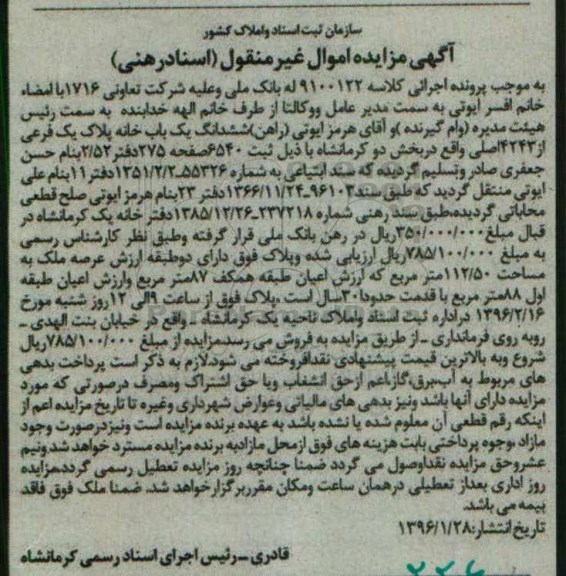 سازمان ثبت اسناد واملاک کشور
آگهی مزایده اموال غیر منقول (اسناد رهنی)
به موجب پرونده اجرائی کلاسه ۹۱۰۰۱۲۲ له بانک ملی وعلیه شرکت تعاونی ۱۷۱۶با امضاء
خانم افسر ایوتی به سمت مدیر عامل ووکالتا از طرف خانم الهه خدابنده به سمت رئیس
هیئت مدیره (وام گیرنده )و آقای هرمز ایوتی (راهن)ششدانگ یک باب خانه پلاک یک فرعی
از۴۲۴۳اصلی واقع دربخش دو کرمانشاه با ذیل ثبت ۶۵۴۰صفحه ۲۷۵دفتر۲/۵۲بنام حسن
جعفری صادر وتسلیم گردیده که سند ابتیاعی به شماره ۵۵۳۲۶-۱۳۵۱/۲/۲دفتر۱۱بنام علی
ایوتی منتقل گردید که طبق سند۹۶۱۰۳-۱۳۶۶/۱۱/۲۴دفتر ۲۳بنام هرمز ایوتی صلح قطعی
محاباتی گردیده،طبق سند رهنی شماره ۲۳۷۲۱۸-۱۳۸۵/۱۲/۲۶دفتر خانه یک کرمانشاه در
قبال مبلغ۳۵۰/۰۰۰/۰۰۰ریال در رهن بانک ملی قرار گرفته وطبق نظر کارشناس رسمی
به مبلغ ۷۸۵/۱۰۰/۰۰۰ریال ارزیابی شده وپلاک فوق دارای دوطبقه ارزش عرصه ملک به
مساحت ۱۱۲/۵۰متر مربع که ارزش اعیان طبقه همکف ۸۷متر مربع وارزش اعیان طبقه
اول ۸۸متر مربع با قدمت حدودا۳۰سال است ،پلاک فوق از ساعت ۹الی ۱۲روز شنبه مورخ
۱۳۹۶/۲/۱۶ دراداره ثبت اسناد واملاک ناحیه یک کرمانشاه - واقع در خیابان بنت الهدی -
روبه روی فرمانداری - از طریق مزایده به فروش می رسد،مزایده از مبلغ ۷۸۵/۱۰۰/۰۰۰ریال
شروع وبه بالاترین قیمت پیشنهادی نقدافروخته می شود،لازم به ذکر است پرداخت بدهی
های مربوط به آب،برق،گاز،اعم ازحق انشعاب ویا حق اشتراک ومصرف درصورتی که مورد
مزایده دارای آنها باشد ونیز بدهی های مالیاتی وعوارض شهرداری وغیره تا تاریخ مزایده اعم از
اینکه رقم قطعی آن معلوم شده یا نشده باشد به عهده برنده مزایده است ونیزدرصورت وجود
مازاد ،وجوه پرداختی بابت هزینه های فوق ازمحل مازادبه برنده مزایده مسترد خواهد شد،ونیم
عشروحق مزایده نقداوصول می گردد ضمنا چنانچه روز مزایده تعطیل رسمی گردد،مزایده
روز اداری بعداز تعطیلی درهمان ساعت ومکان مقرربرگزارخواهد شد. ضمنا ملک فوق فاقد
بیمه می باشد.
تاریخ انتشار:۱۳۹۶/۱/۲۸
قادری - رئیس اجرای اسناد رسمی کرمانشاه